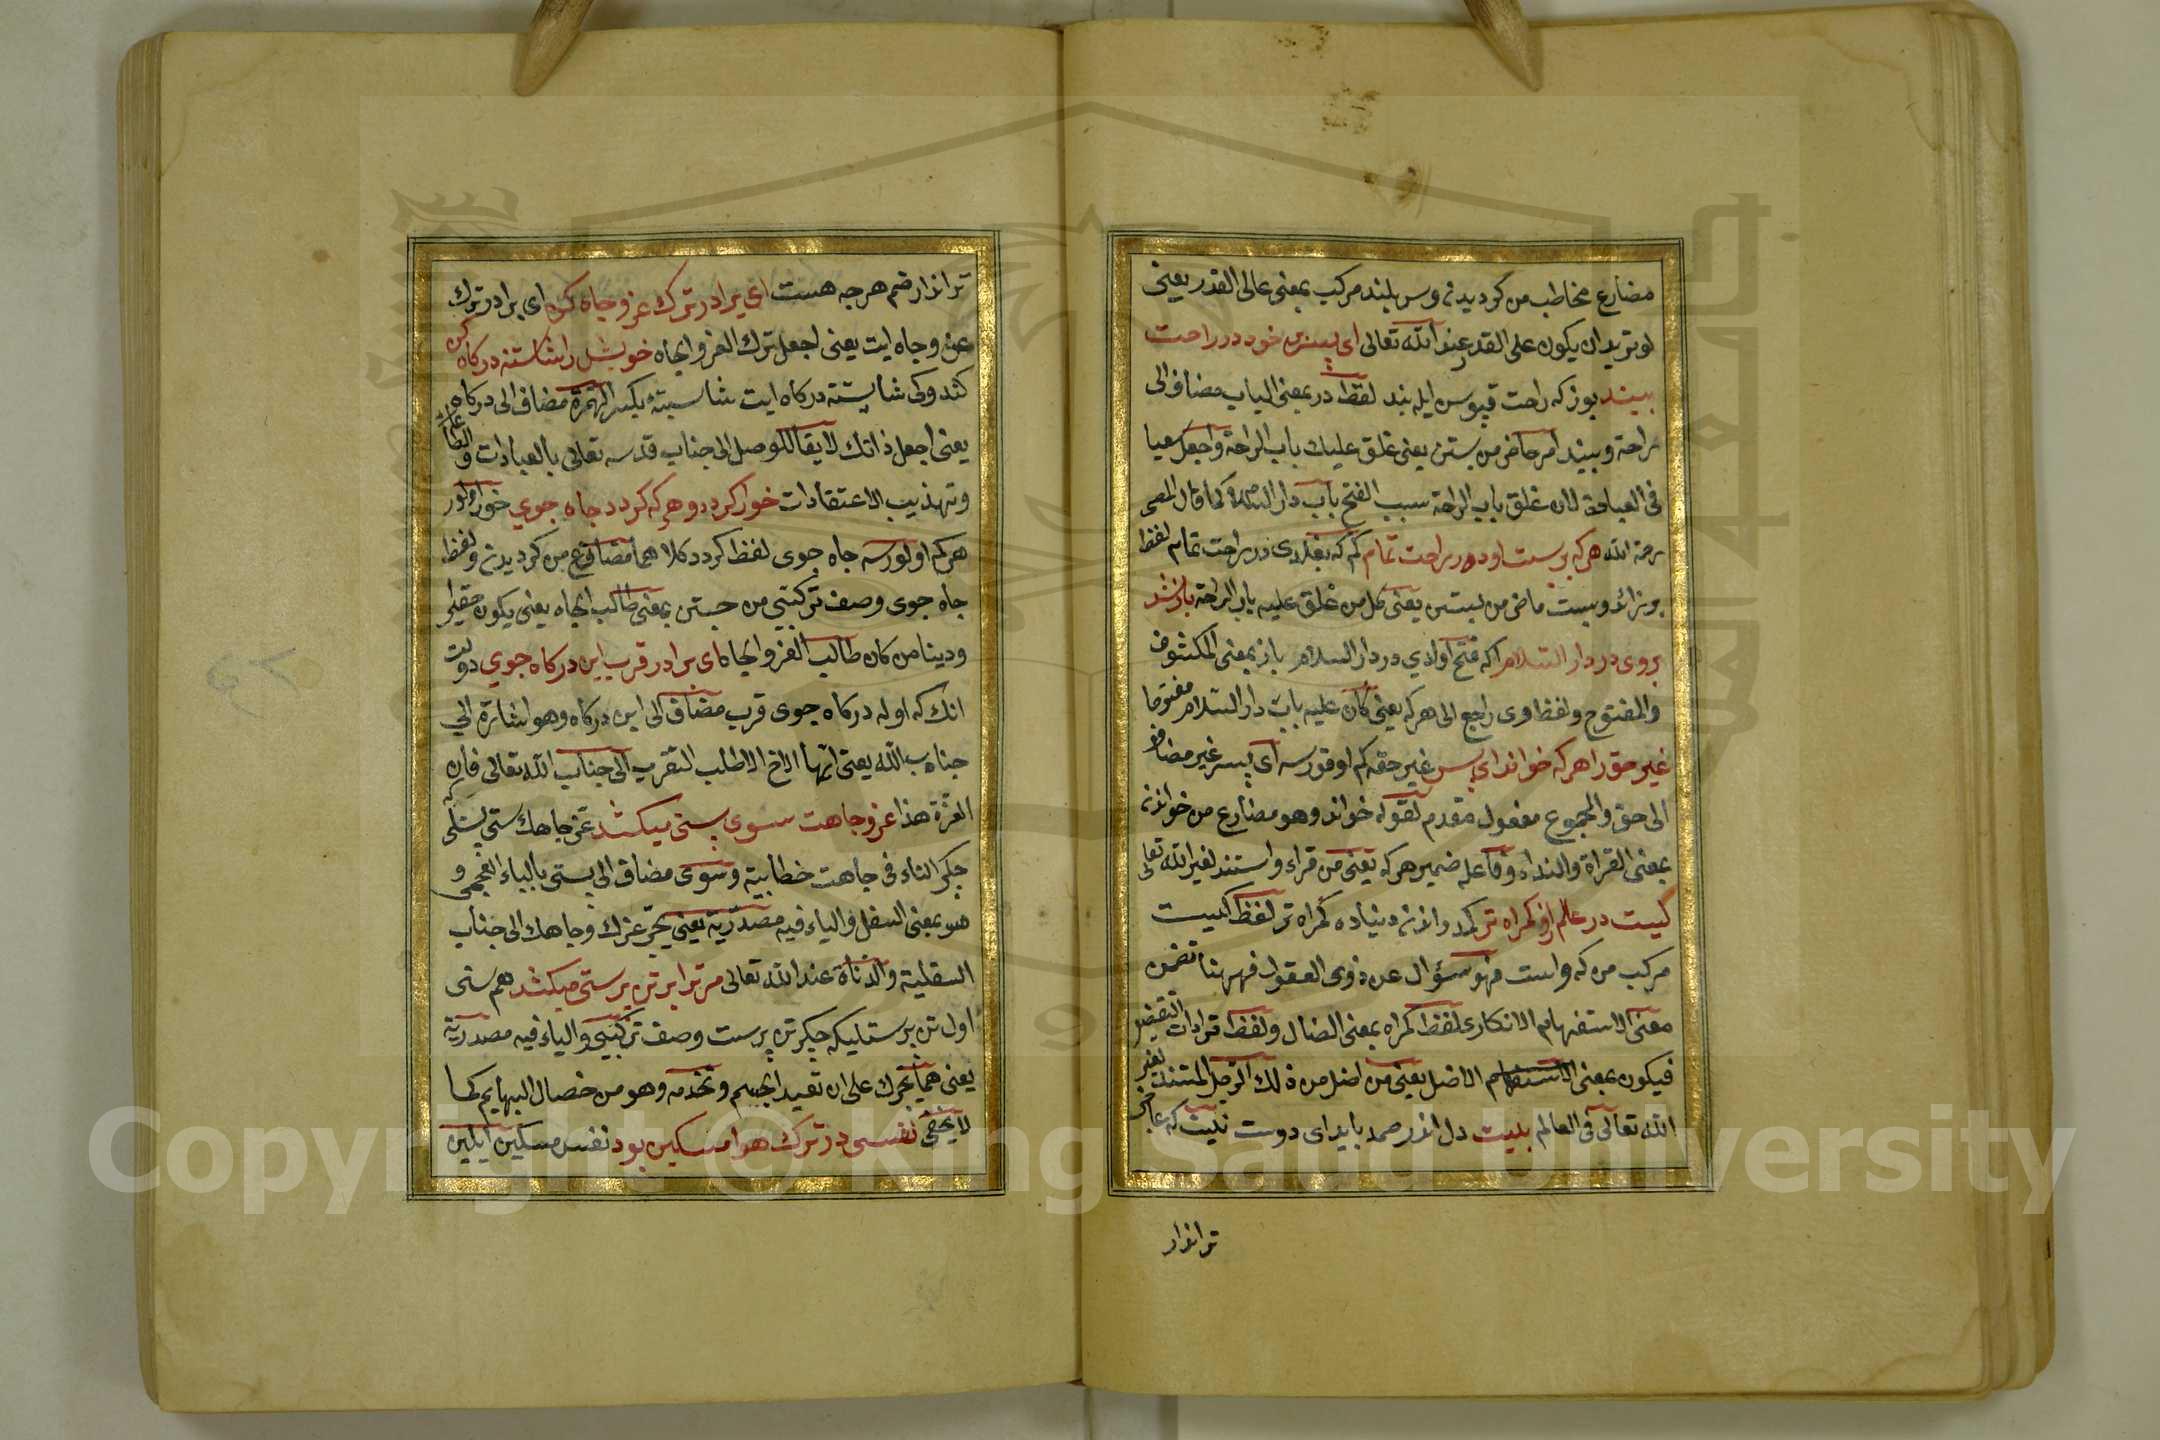 مضارع مخاطب من كرديدن وسر بلند مركب بمعنى عالى القدر يعنى
لو تريد ان يكون على القدر عند الله تعالى اى پسر خود در راحت
ببند بوز كه راحت قپوسن ايله بند لفظ در بمعنى الباب مضاف الى
راحة وببند امر حاضر من بستن يعنى غلق عليك باب الراحة واجعل سعيا
فى العبادة لان غلق باب الراحة سبب الفتح باب دار السلام كما قال المص
رحمة الله هركه بربست او در راحت تمام كم كه بغلدى در راحت تمام لفظ
بر زائد وبست ماضى من بستن يعنى كل من غلق عليه باب الراحة باز شد
بروى در دار السلام اكه فتح اولدي در دار السلام باز بمعنى المكشوف
والمفتوح ولفظ وى راجع الى هركه يعنى كان عليه باب دار السلام مفتوحا
غير حق را هركه خواند اي پسر غير حقه كم اوقورسه اى پسر غير مضاف
الى حق والمجموع مفعول مقدم لقوله خواند وهو مضارع من خواندن
بمعنى القراة والنداء وفاعله ضمير هركه يعنى من قراء واستند لغير الله تعالى
كيست در عالم ازو كمراه تر كمدر اندن دنياده كمراه تر لفظ كيست
مركب من كه واست فهو سؤال عن ذوى العقول فههنا تضمن
معنى الاستفهام الانكارى لفظ كمراه بمعنى الضال ولفظ تر ادات التفضيل
فيكون بمعنى الاضل يعنى من اضل من ذلك الرجل المستند لغير
الله تعالى فى العالم بليت دل اندر صمد بايد اى دوست نيت كه عاجز
تراندار
تراندار صنم هرجه هست اى برادر ترك عز وجاه كن اى برادر ترك
عز وجاه ايت يعنى اجعل ترك العز والجاه خويش را شايسته دركاه كن
كندوكى شايسته دركاه ايت شايسته بكسر الهمزة مضاف الى دركاه
يعنى اجعل ذاتك لايقا للوصل الى جناب قدسه تعالى بالعبادات والطاعات
وتهذيب الاعتقادات خوار كردد وهركه كردد جاه جوي خور اولور
هركه اولورسه جاه جوى لفظ كردد كلاهما مضارع من كرديدن ولفظ
جاه جوى وصف تركيبى من جستن بمعنى طالب الجاه يعنى يكون حقيرا
ودينا من كان طالب العز والجاه اى برادر قرب اين دركاه جوي دولت
انك كه اوله دركاه جوى قرب مضاف الى اين دركاه وهو اشارة الى
جناب الله يعنى ايها الاخ الاطلب التقرب الى جناب الله تعالى فان
العزة هذا عز وجاهت سوى پستى ميكشد عز جاهك سنى پستلكه
چكر التاء فى جاهت خطابية وسوى مضاف الى پستى بالباء العجمى و
هو بمعنى السفل والياء فيه مصدرية يعنى يجر عزك وجاهك الى جناب
السفلية والدناة عند الله تعالى مر ترا بر تن پرستى ميكشد هم سنى
اول تن پرستليكه چكر تن پرست وصف تركيبى والياء فيه مصدرية
يعنى هما يجرك على ان تعيد الجسم وتخدمه وهو من خصال البهايم كما
لا يخفى نفسى در ترك هوا مسكين بود نفس مسكين ايلين